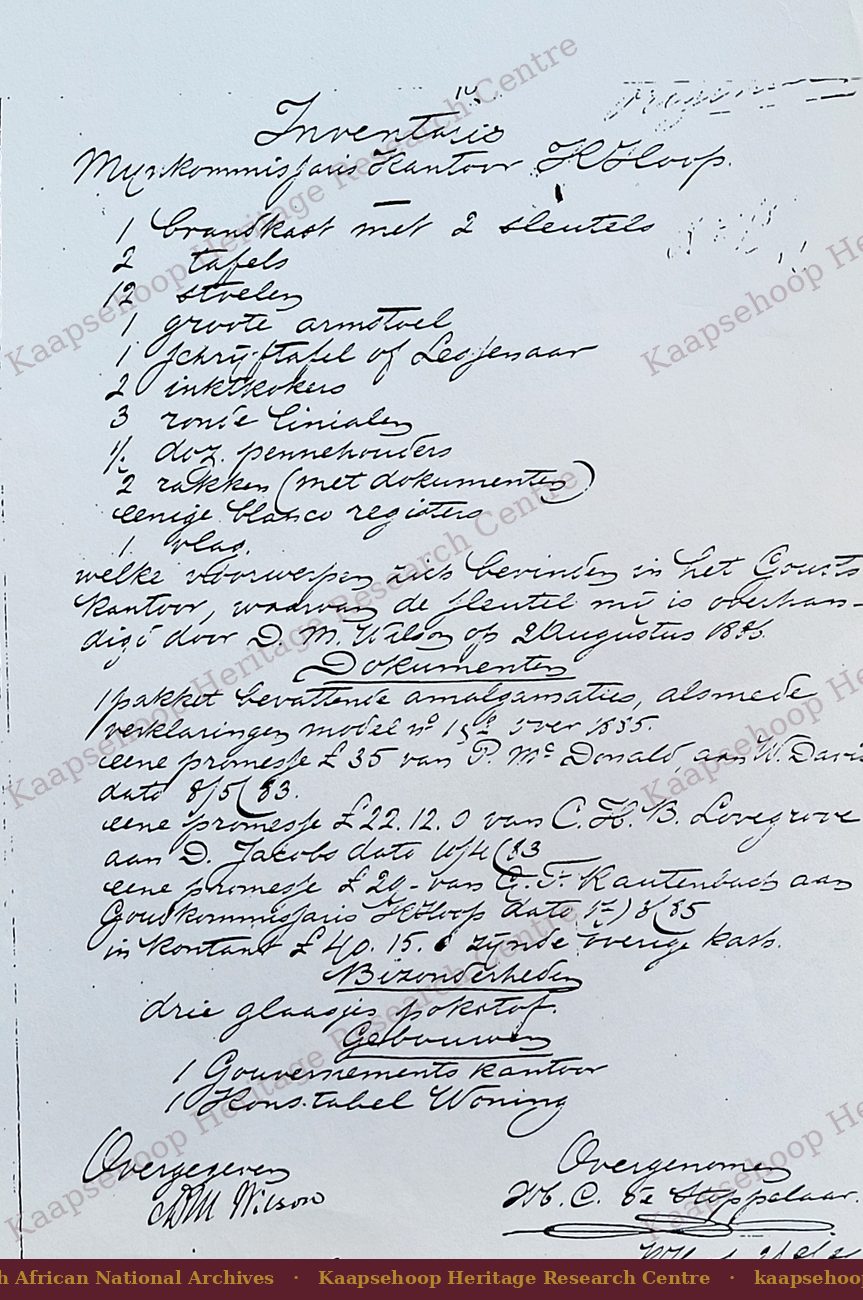 Inventaris
Mynkommissaris Kantoor KHoop.
1 brandkast met 2 sleutels
2 tafels
12 stoelen
1 groote armstoel
1 schrijftafel of Lessenaar
2 inktkokers
3 ronde linialen
½ doz. pennehouders
2 rakken (met dokumenten)
eenige blanco registers
1 vlag.
welke voorwerpen zich bevinden in het Gouvts
kantoor, waarvan de sleutel mij is overhan-
digd door D. M. Wilson op 2 Augustus 1886.
Dokumenten
1 pakket bevattende amalgamaties, alsmede
verklaringen model no over 1885.
eene promesse £ 35 van P. Mc Donald, aan W. Davis
dato 8/5/83.
eene promesse £ 22.12.0 van C. H. B. Lovegrove
aan D. Jacobs dato 10/4/83
eene promesse £ 29,- van F. Rautenbach aan
Goudkommissaris KHoop dato 17/8/85
in kontant £ 40. 15. 6 zijnde overige kash.
Bizonderheden
drie glaasjes pokstof.
Gebouwen
1 Gouvernements kantoor
1 Konstabel Woning
Overgegeven
DM Wilson
Overgenomen
W. C. de Stoppelaar.
h African National Archives · Kaapsehoop Heritage Research Centre · kaapsehoo
Kaapsehoop Heritage Research Centre